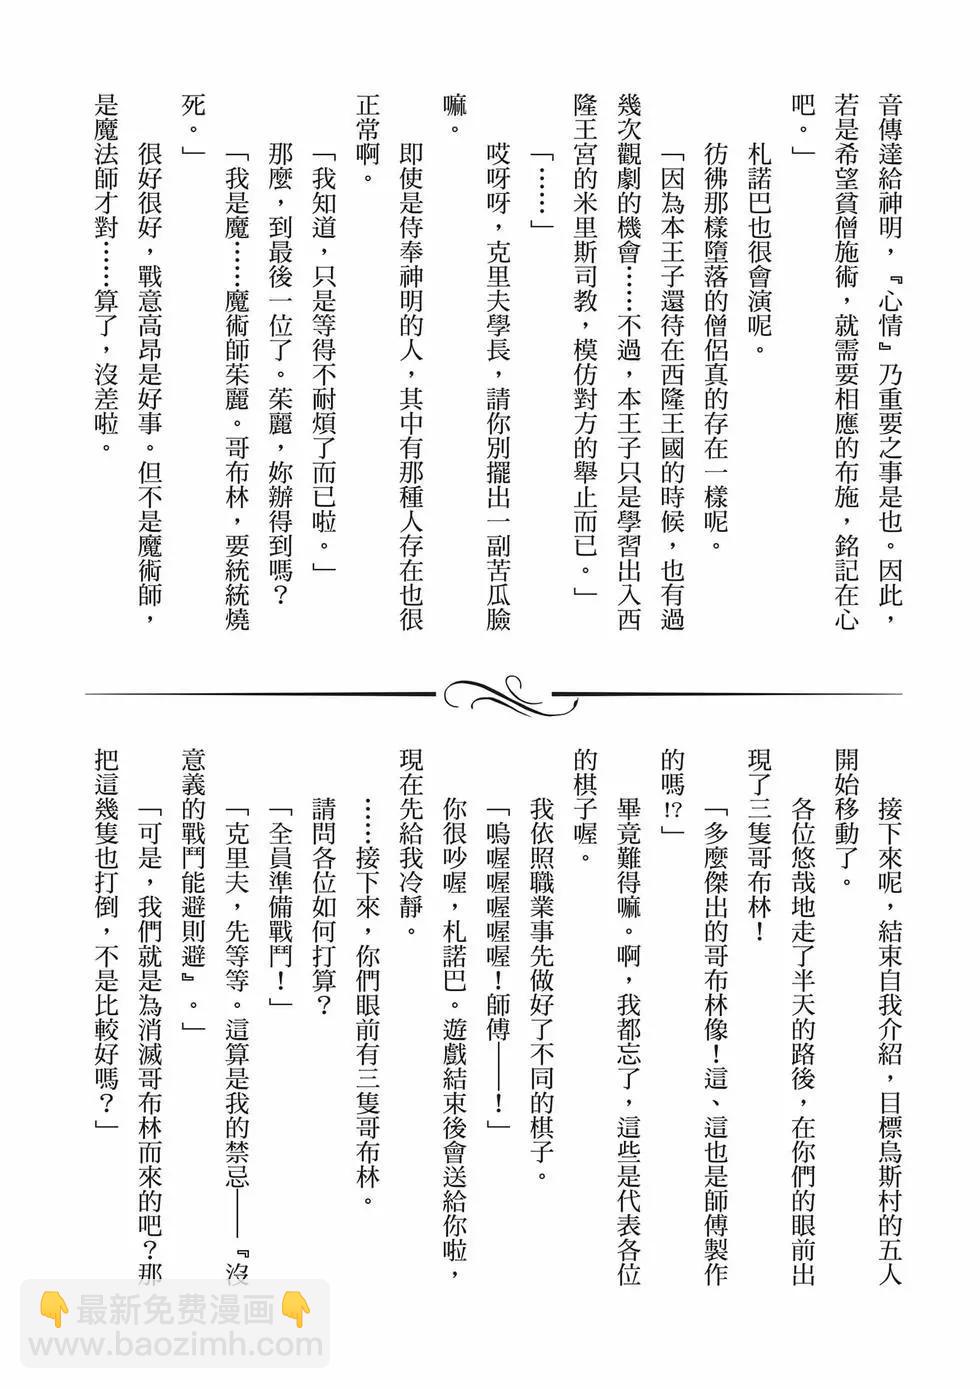 音傳達給神明，『心情』乃重要之事是也。因此，
若是希望貧僧施術，就需要相應的布施，銘記在心
吧。」
札諾巴也很會演呢。
彷彿那樣墮落的僧侶真的存在一樣呢。
「因為本王子還待在西隆王國的時候，也有過
幾次觀劇的機會……不過，本王子只是學習出入西
隆王宮的米里斯司教，模仿對方的舉止而已。」
「……」
哎呀呀，克里夫學長，請你別擺出一副苦瓜臉
嘛。
即使是侍奉神明的人，其中有那種人存在也很
正常啊。
「我知道，只是等得不耐煩了而已啦。」
那麼，到最後一位了。茱麗，妳辦得到嗎？
「我是魔……魔術師茱麗。哥布林，要統統燒
死。」
很好很好，戰意高昂是好事。但不是魔術師，
是魔法師才對……算了，沒差啦。
接下來呢，結束自我介紹，目標烏斯村的五人
開始移動了。
各位悠哉地走了半天的路後，在你們的眼前出
現了三隻哥布林！
「多麼傑出的哥布林像！這、這也是師傅製作
的嗎!?」
畢竟難得嘛。啊，我都忘了，這些是代表各位
的棋子喔。
我依照職業事先做好了不同的棋子。
「嗚喔喔喔喔喔！師傅——！」
你很吵喔，札諾巴。遊戲結束後會送給你啦，
現在先給我冷靜。
……接下來，你們眼前有三隻哥布林。
請問各位如何打算？
「全員準備戰鬥！」
「克里夫，先等等。這算是我的禁忌——『沒
意義的戰鬥能避則避』。」
「可是，我們就是為消滅哥布林而來的吧？那
把這幾隻也打倒，不是比較好嗎？」
👇最新免费漫画👇
www.baozimh.com